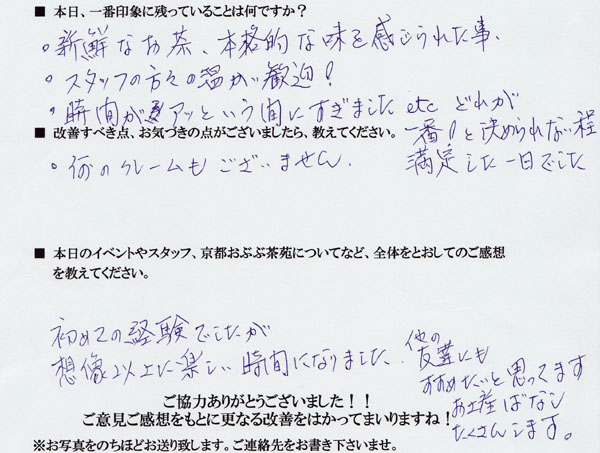 ■ 本日、一番印象に残っていることは何ですか？
・新鮮なお茶、本格的な味を感じられた事、
・スタッフの方々の温かい歓迎！
・時間がアッという間にすぎました etc どれが
一番！と決められない程
満足した一日でした
■ 改善すべき点、お気づきの点がございましたら、教えてください。
・何のクレームもございません.
■ 本日のイベントやスタッフ、京都おぶぶ茶苑についてなど、全体をとおしてのご感想
を教えてください。
初めての経験でしたが
想像以上に楽しい時間になりました.
他の
友達にも
すすめたいと思ってます
お土産ばなし
たくさんします。
ご協力ありがとうございました！！
ご意見ご感想をもとに更なる改善をはかってまいりますね！
※お写真をのちほどお送り致します。ご連絡先をお書き下さいませ。